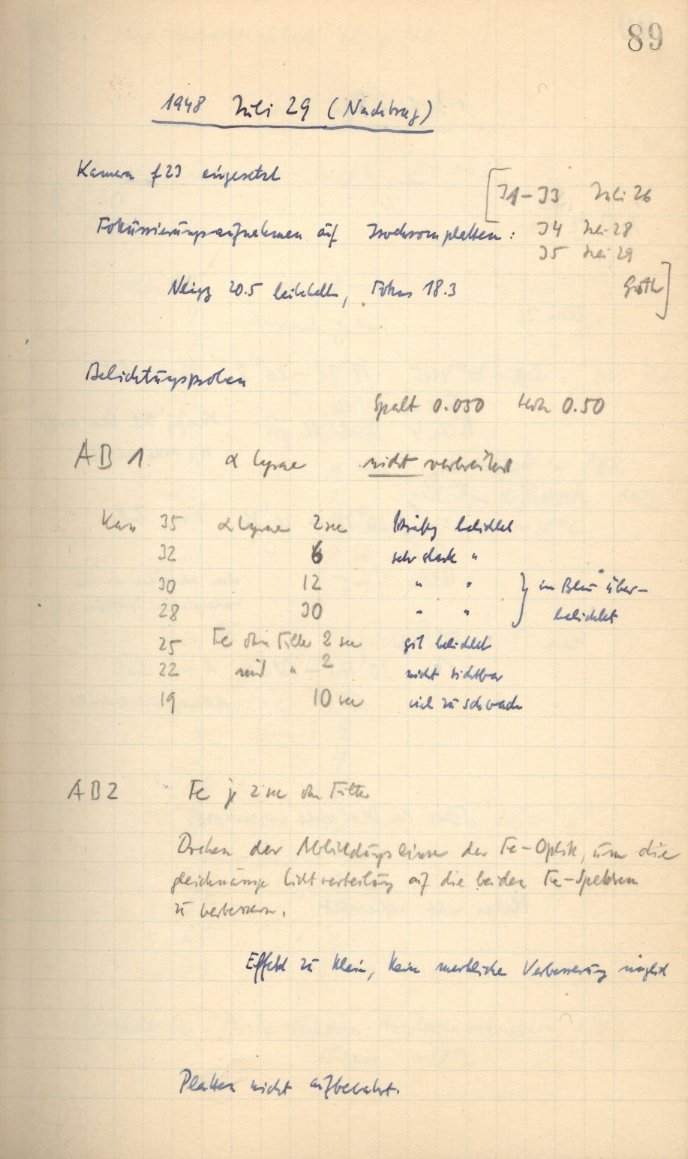 89
1948 Juli 29 (Nachtrag)
Kamera f23 eingesetzt
[31-33 Juli 26
Fokussierungsaufnahmen auf Isochromplatten: 34 Juli 28
35 Juli 29
Neigg 20.5 beibehalten, Fokus 18.3
Belichtungsproben
Spalt 0.050 Höhe 0.50
AB 1 α Lyrae nicht verbreitert
Kass 35 α Lyrae 2 sec kräftig belichtet
32 6 sehr stark "
30 12 " " } im Blau über-
28 30 " " belichtet
25 Fe ohne Filter 2 sec gut belichtet
22 mit " 2 nicht sichtbar
19 10 sec viel zu schwach
AB2 Fe je 2 sec ohne Filter
Drehen der Abbildungslinse der Fe-Optik, um die
gleichmässige Lichtverteilung auf die beiden Fe-Spektren
zu verbessern.
Effekt zu klein, keine merkliche Verbesserung möglich
Platten nicht aufbewahrt.